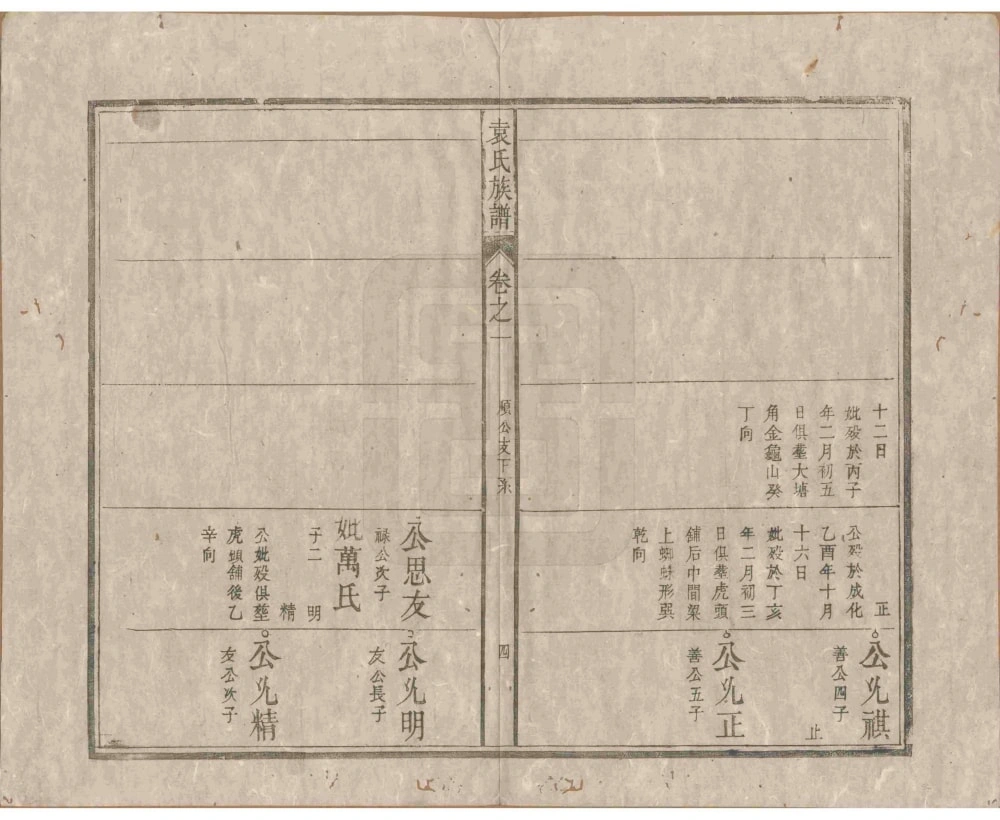 十二日
妣殁於丙子
年二月初五
日俱塟大塘
角金龜山癸
丁向
正
公殁於成化
乙酉年十月
十六日
妣殁於丁亥
年二月初三
日俱塟虎頭
舖后中間架
上蜘蛛形巽
乾向
公允祺
善公四子
止
公允正
善公五子
袁氏族譜
卷之一
順公支下系
四
公思友
禄公次子
妣萬氏
子二
明
精
公妣殁俱塟
虎頭舖後乙
辛向
公允明
友公長子
公允精
友公次子